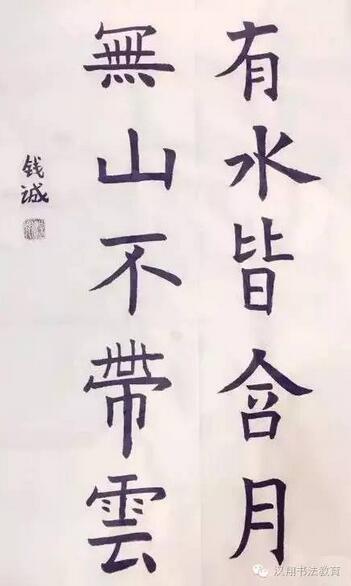 有水皆含月
無山不帶雲
钱诚
汉翔书法教育